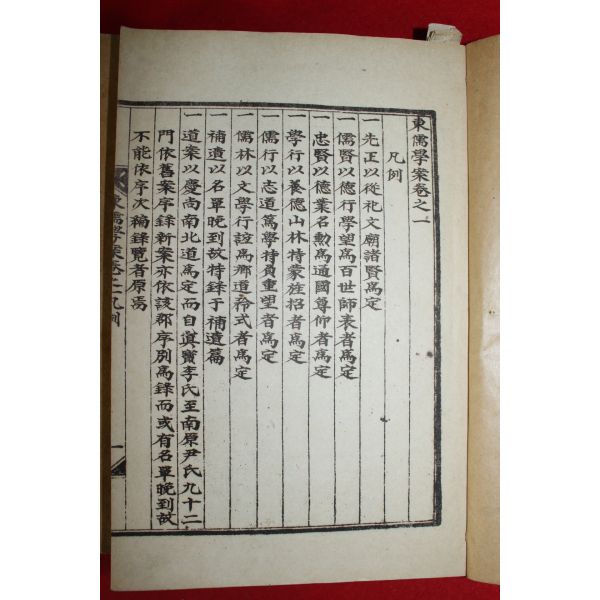 東儒學案卷之一
凡例
一先正以從祀文廟諸賢爲定
一儒賢以德行學望爲百世師表者爲定
一忠賢以德業名勳爲通國尊仰者爲定
一學行以養德山林特蒙旌招者爲定
一儒行以志道篤學特負重望者爲定
一儒林以文學行誼爲鄕道矜式者爲定
一補遺以名單晩到故特錄于補遺篇
一道案以慶尙南北道爲定而自眞寶李氏至南原尹氏九十二
門依舊案序錄新案亦依該郡序別爲錄而或有名單晩到故
不能依序次編錄覽者原焉
東儒學案卷之一凡例
一